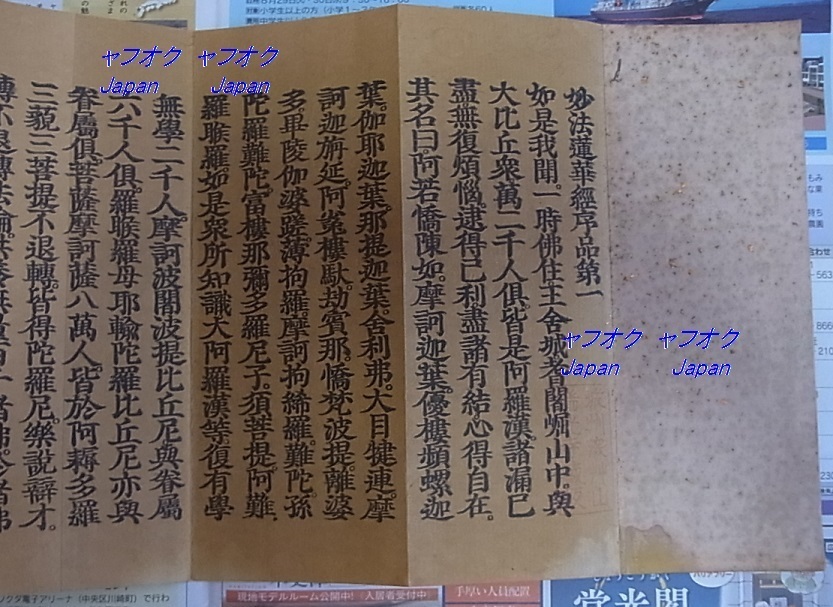 妙法蓮華經序品第一
如是我聞。一時佛住王舍城耆闍崛山中。與
大比丘衆萬二千人俱。皆是阿羅漢。諸漏已
盡無復煩惱。逮得已利盡諸有結心得自在。
其名曰。阿若憍陳如。摩訶迦葉。優樓頻螺迦
葉。伽耶迦葉。那提迦葉。舍利弗。大目揵連。摩
訶迦旃延。阿㝹樓馱。劫賓那。憍梵波提。離婆
多。畢陵伽婆蹉。薄拘羅。摩訶拘絺羅。難陀。孫
陀羅難陀。富樓那彌多羅尼子。須菩提。阿難。
羅睺羅。如是衆所知識大阿羅漢等。復有學
無學二千人。摩訶波闍波提比丘尼與眷屬
六千人俱。羅睺羅母耶輸陀羅比丘尼亦與
眷屬俱。菩薩摩訶薩八萬人。皆於阿耨多羅
三藐三菩提不退轉。皆得陀羅尼。樂說辯才。
ヤフオク ヤフオク
Japan Japan
ヤフオク ヤフオク
Japan Japan
現地モデルルーム公開中!
(入居者受付中)
手厚い人員配置